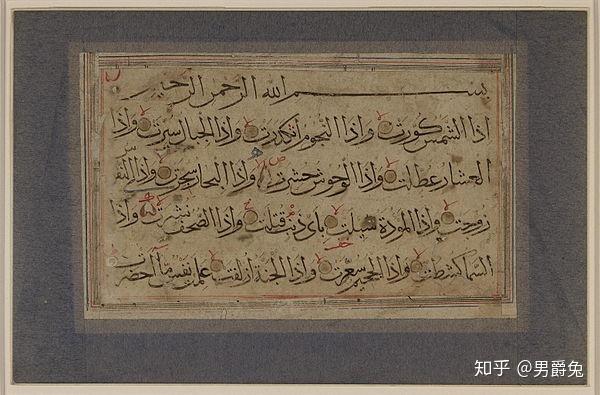 بسم الله الرحمن الرحيم
اذا الشمس كورت واذا النجوم انكدرت واذا الجبال سيرت واذا
العشار عطلت واذا الوحوش حشرت واذا البحار سجرت واذا النفوس
زوجت واذا المودة سيلت باي ذنب قتلت واذا الصحف نشرت واذا
السما كشطت واذا الجحيم سعرت واذا الجنة ازلفت علمت نفس ما احضرت
知乎 @男爵兔